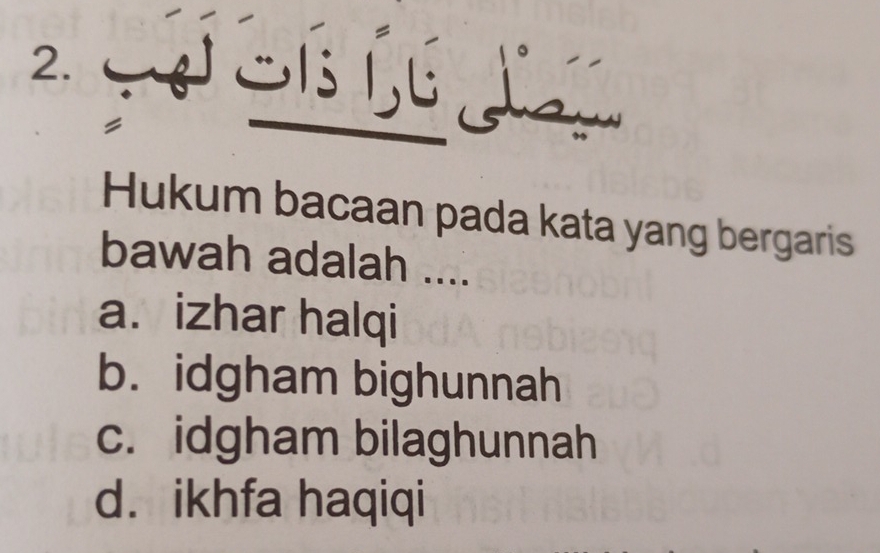 2. سَيَصْلٰى نَارًا ذَاتَ لَهَبٍ
Hukum bacaan pada kata yang bergaris
bawah adalah ....
a. izhar halqi
b. idgham bighunnah
c. idgham bilaghunnah
d. ikhfa haqiqi